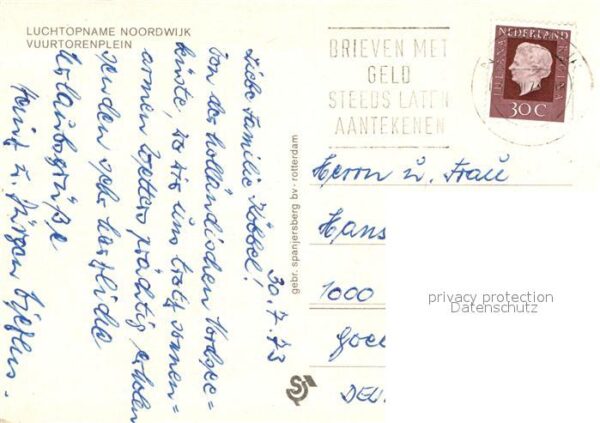 LUCHTOPNAME NOORDWIJK
VUURTORENPLEIN
30.7.73
Liebe Familie Köbbel!
Von der holländischen Nordsee=
küste, wo wir uns trotz sonnen=
armen Wetters prächtig erholen
senden sehr herzliche
Urlaubsgrüße
Heinz u. Jürgen
gebr. spanjersberg bv - rotterdam
BRIEVEN MET
GELD
STEEDS LATEN
AANTEKENEN
NEDERLAND
JULIANA REGINA
30 C
Herrn u. Frau
Hans
1000
Goe
privacy protection
Datenschutz